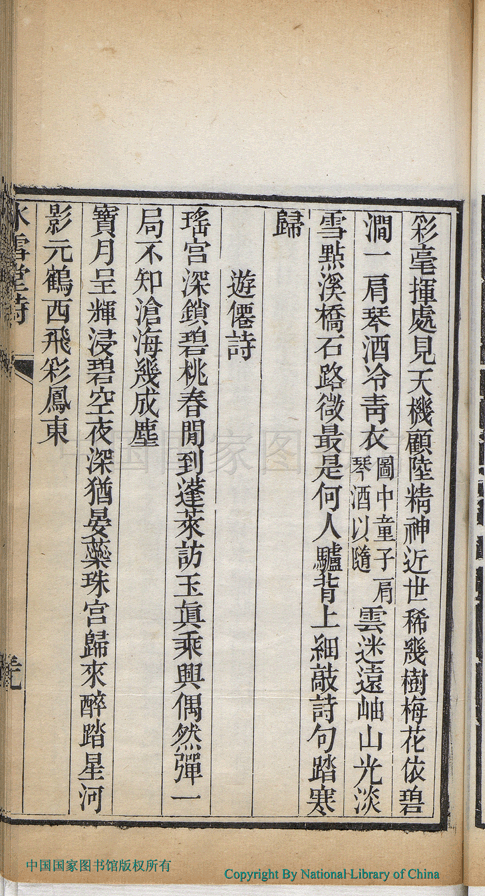 彩毫揮處見天機顧陸精神近世稀幾樹梅花依碧
澗一肩琴酒冷靑衣圖中童子肩琴酒以隨雲迷遠岫山光淡
雪點溪橋石路微最是何人驢背上細敲詩句踏寒
歸
遊僊詩
瑤宮深鎖碧桃春閒到蓬萊訪玉眞乘興偶然彈一
局不知滄海幾成塵
寶月呈輝浸碧空夜深猶晏蘂珠宮歸來醉踏星河
影元鶴西飛彩鳳東
冰雪堂詩
中国国家图书馆
中国国家图书馆版权所有
Copyright By National Library of China